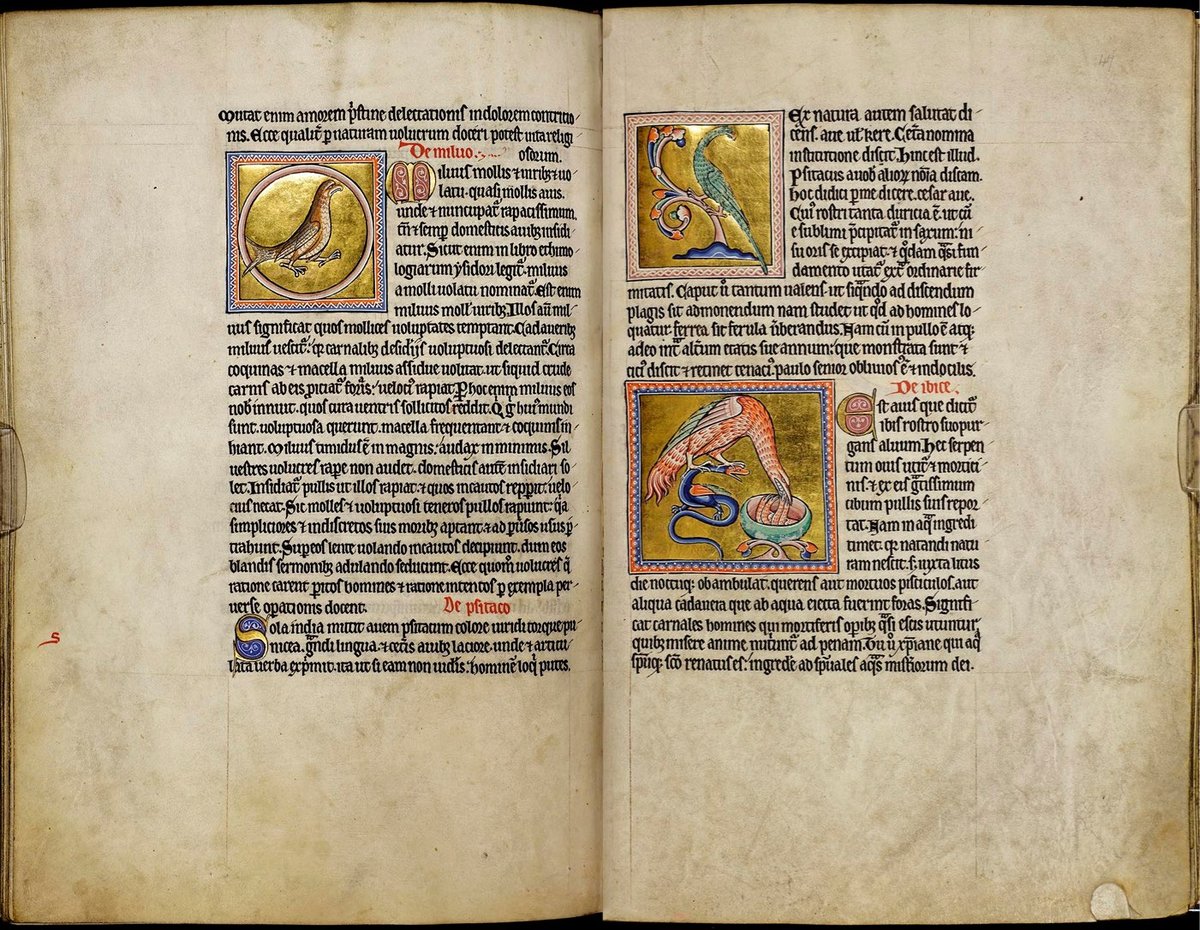 Mutat enim amorem p̾stine delectationis in dolorem contritio-
nis. Ecce qualit̾ p̱ naturam uolucrum doceri potest uita religi-
De miluo. osorum.
Miluus mollis ⁊ uirib; ⁊ uo-
latu. quasi mollis auis.
unde ⁊ nuncupat̾. rapacissimum
tn̄ ⁊ semp̱ domesticis auib; insidi-
atur. Sicut enim in libro ethimo-
logiarum ysidori legit̾. miluus
a molli uolatu nominat̾. Est enim
miluus moll' uirib;. Illos aūt mil-
uus significat quos mollices uoluptates temptant. Cadauerib;
miluus uescit̾. q̾ carnalib; desidijs uoluptuosi delectant̾. Circa
coquinas ⁊ macella miluus assidue uolitat. ut siquid crude
carnis ab eis p̾iciat̾ foras: uelocit̾ rapiat. P̱ hoc enim miluus eos
nob innuit. quos cura uentris sollicitos reddit. Q̾ g̾ hui' mundi
sunt. uoluptuosa querunt. macella frequentant ⁊ coquinis in-
hiant. Miluus timidus ē in magnis. audax in minimis. Sil-
uestres uolucres rap̱e non audet. domesticis aut̄ insidiari so-
let. Insidiat̾ pullis ut illos rapiat. ⁊ quos incautos repp̱it. uelo-
cius necat. Sic molles ⁊ uoluptuosi teneros pullos rapiunt. q̾a
simpliciores ⁊ indiscretos suis morib; aptant. ⁊ ad p̾uosus usus p̱-
trahunt. Sup̱ eos lente uolando incautos decipiunt. dum eos
blandis sermonib; adulando seducunt. Ecce quom̊ uolucres q̾
ratione carent p̱itos homines ⁊ ratione intentos p̱ exempla per-
uerse op̱ationis docent. De psitaco
S
Sola india mittit auem psitacum colore uiridi torque pu-
nicea. g̾ndi lingua. ⁊ ceteris auib; laciore. unde ⁊ articu-
lata uerba exp̾mit. ita ut si eam non uid'is: hominē loq̾ putes.
Ex natura autem salutat di-
cens. aue ul' kere. Cet̾a nomina
institutione discit. Hinc est illud.
Psitacus a uob alior̾ noīa discam.
hoc didici p̱ me dicere. cesar aue.
Cui' rostri tanta duricia ē. ut cū
e sublimi p̾cipitat̾ in saxum: ni-
su oris se excipiat. ⁊ q̊dam q̾si fun-
damento utat̾ ext̾ordinarie fir-
mitatis. Caput ů tantum ualens. ut siq̾ndo ad discendum
plagis sit admonendum nam studet ut q̊d ad homines lo-
quat̾. ferrea sit ferula ůberandus. Nam cū in pullo ē atq;
adeo int̾ alt̾um etatis sue annum: que monstrata sunt ⁊
cici' discit ⁊ retinet tenaci'. paulo senior obliuiosꝰ ē ⁊ indocilis.
De ibice.
Est auis que dicit̾
ibis rostro suo pur-
gans aluum. Hec serpen-
tium ouis uicit̾ ⁊ mortici-
nis. ⁊ ex eis g̾tissimum
cibum pullis suis repor-
tat. Nam in aq̾ ingredi
timet. q̾ natandi natu-
ram nescit. s; iuxta litus
die noctuq; obambulat. querens aut mortuos pisciculos. aut
aliqua cadauera que ab aqua eiecta fuerint foras. Signifi-
cat carnales homines qui mortiferis op̱ib; q̾si escis utuntur.
quib; misere anime nut̾unt̾ ad penam. Tu ů xp̄iane qui aq̾
⁊ sp̄u sc̄o renatus es: ingrede ad sp̄uales aq̾s mist̾iorum dei.